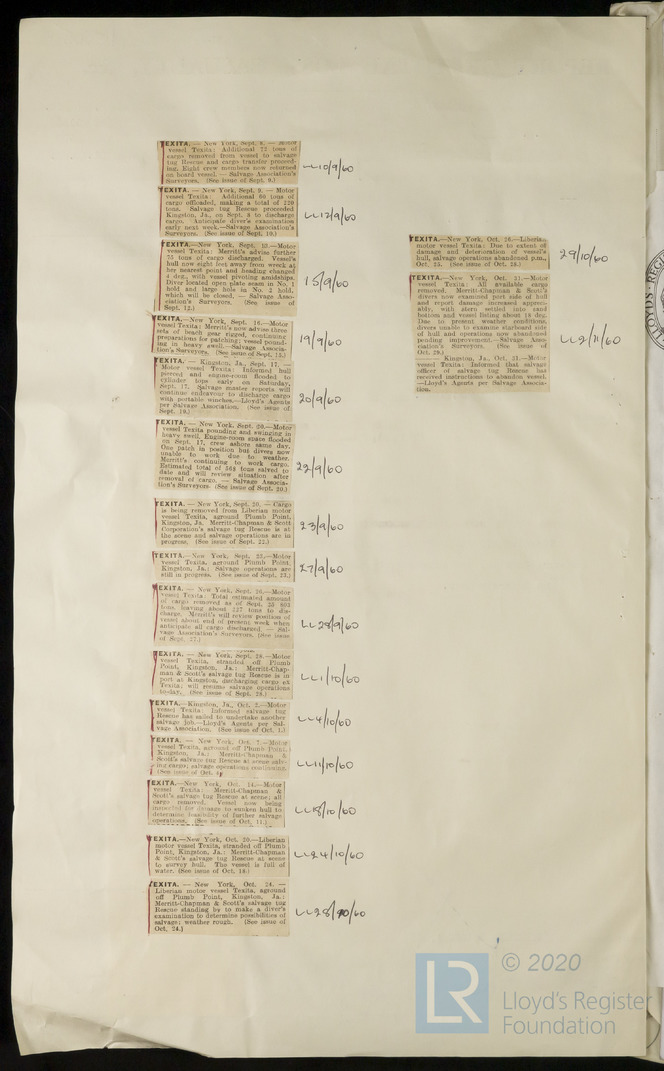 TEXITA. — New York, Sept. 8. — Motor
vessel Texita: Additional 72 tons of
cargo removed from vessel to salvage
tug Rescue and cargo transfer proceed-
ing. Eight crew members now returned
on board vessel. — Salvage Association's
Surveyors. (See issue of Sept. 9.)
LL 10/9/60
TEXITA. — New York, Sept. 9. — Motor
vessel Texita: Additional 60 tons of
cargo offloaded, making a total of 220
tons. Salvage tug Rescue proceeded
Kingston, Ja., on Sept. 8 to discharge
cargo. Anticipate diver's examination
early next week.—Salvage Association's
Surveyors. (See issue of Sept. 10.)
LL 12/9/60
TEXITA.—New York, Sept. 13.—Motor
vessel Texita: Merritt's advise further
75 tons of cargo discharged. Vessel's
hull now eight feet away from wreck at
her nearest point and heading changed
4 deg., with vessel pivoting amidships.
Diver located open plate seam in No. 1
hold and large hole in No. 2 hold,
which will be closed. — Salvage Asso-
ciation's Surveyors. (See issue of
Sept. 12.)
15/9/60
TEXITA.—New York, Sept. 16.—Motor
vessel Texita: Merritt's now advise three
sets of beach gear rigged, continuing
preparations for patching; vessel pound-
ing in heavy swell.—Salvage Associa-
tion's Surveyors. (See issue of Sept. 15.)
19/9/60
TEXITA. — Kingston, Ja., Sept. 17. —
Motor vessel Texita: Informed hull
pierced and engine-room flooded to
cylinder tops early on Saturday,
Sept. 17. Salvage master reports will
continue endeavour to discharge cargo
with portable winches.—Lloyd's Agents
per Salvage Association. (See issue of
Sept. 19.)
20/9/60
TEXITA. — New York, Sept. 20.—Motor
vessel Texita pounding and swinging in
heavy swell. Engine-room space flooded
on Sept. 17, crew ashore same day.
One patch in position but divers now
unable to work due to weather.
Merritt's continuing to work cargo.
Estimated total of 568 tons salved to
date and will review situation after
removal of cargo. — Salvage Associa-
tion's Surveyors. (See issue of Sept. 20.)
22/9/60
TEXITA. — New York, Sept. 20. — Cargo
is being removed from Liberian motor
vessel Texita, aground Plumb Point,
Kingston, Ja. Merritt-Chapman & Scott
Corporation's salvage tug Rescue is at
the scene and salvage operations are in
progress. (See issue of Sept. 22.)
23/9/60
TEXITA.—New York, Sept. 23.—Motor
vessel Texita, aground Plumb Point,
Kingston, Ja.: Salvage operations are
still in progress. (See issue of Sept. 23.)
27/9/60
TEXITA. — New York, Sept. 26.—Motor
vessel Texita: Total estimated amount
of cargo removed as of Sept. 25 803
tons, leaving about 127 tons to dis-
charge. Merritt's will review position of
vessel about end of present week when
anticipate all cargo discharged. — Sal-
vage Association's Surveyors. (See issue
of Sept. 27.)
LL 28/9/60
TEXITA. — New York, Sept. 28. — Motor
vessel Texita, stranded off Plumb
Point, Kingston, Ja.: Merritt-Chap-
man & Scott's salvage tug Rescue is in
port at Kingston, discharging cargo ex
Texita; will resume salvage operations
to-day. (See issue of Sept. 28.)
LL 1/10/60
TEXITA.—Kingston, Ja., Oct. 2.—Motor
vessel Texita: Informed salvage tug
Rescue has sailed to undertake another
salvage job.—Lloyd's Agents per Sal-
vage Association. (See issue of Oct. 1.)
LL 4/10/60
TEXITA. — New York, Oct. 7.—Motor
vessel Texita, aground off Plumb Point,
Kingston, Ja.: Merritt-Chapman &
Scott's salvage tug Rescue at scene salv-
ing cargo; salvage operations continuing.
(See issue of Oct. 4)
LL 11/10/60
TEXITA. — New York, Oct. 14.—Motor
vessel Texita: Merritt-Chapman &
Scott's salvage tug Rescue at scene; all
cargo removed. Vessel now being
inspected for damage to sunken hull to
determine feasibility of further salvage
operations. (See issue of Oct. 11.)
LL 18/10/60
TEXITA.—New York, Oct. 20.—Liberian
motor vessel Texita, stranded off Plumb
Point, Kingston, Ja.: Merritt-Chapman
& Scott's salvage tug Rescue at scene
to survey hull. The vessel is full of
water. (See issue of Oct. 18.)
LL 24/10/60
TEXITA. — New York, Oct. 24. —
Liberian motor vessel Texita, aground
off Plumb Point, Kingston, Ja.:
Merritt-Chapman & Scott's salvage tug
Rescue standing by to make a diver's
examination to determine possibilities of
salvage; weather rough. (See issue of
Oct. 24.)
LL 28/10/60
TEXITA.—New York, Oct. 26.—Liberian
motor vessel Texita: Due to extent of
damage and deterioration of vessel's
hull, salvage operations abandoned p.m.,
Oct. 25. (See issue of Oct. 28.)
29/10/60
TEXITA.—New York, Oct. 31.—Motor
vessel Texita: All available cargo
removed. Merritt-Chapman & Scott's
divers now examined port side of hull
and report damage increased appreci-
ably, with stern settled into sand
bottom and vessel listing about 18 deg.
Due to present weather conditions,
divers unable to examine starboard side
of hull and operations now abandoned
pending improvement.—Salvage Asso-
ciation's Surveyors. (See issue of
Oct. 29.)
Kingston, Ja., Oct. 31.—Motor
vessel Texita: Informed that salvage
officer of salvage tug Rescue has
received instructions to abandon vessel.
—Lloyd's Agents per Salvage Associa-
tion.
LL 2/11/60
LR
© 2020
Lloyd's Register
Foundation